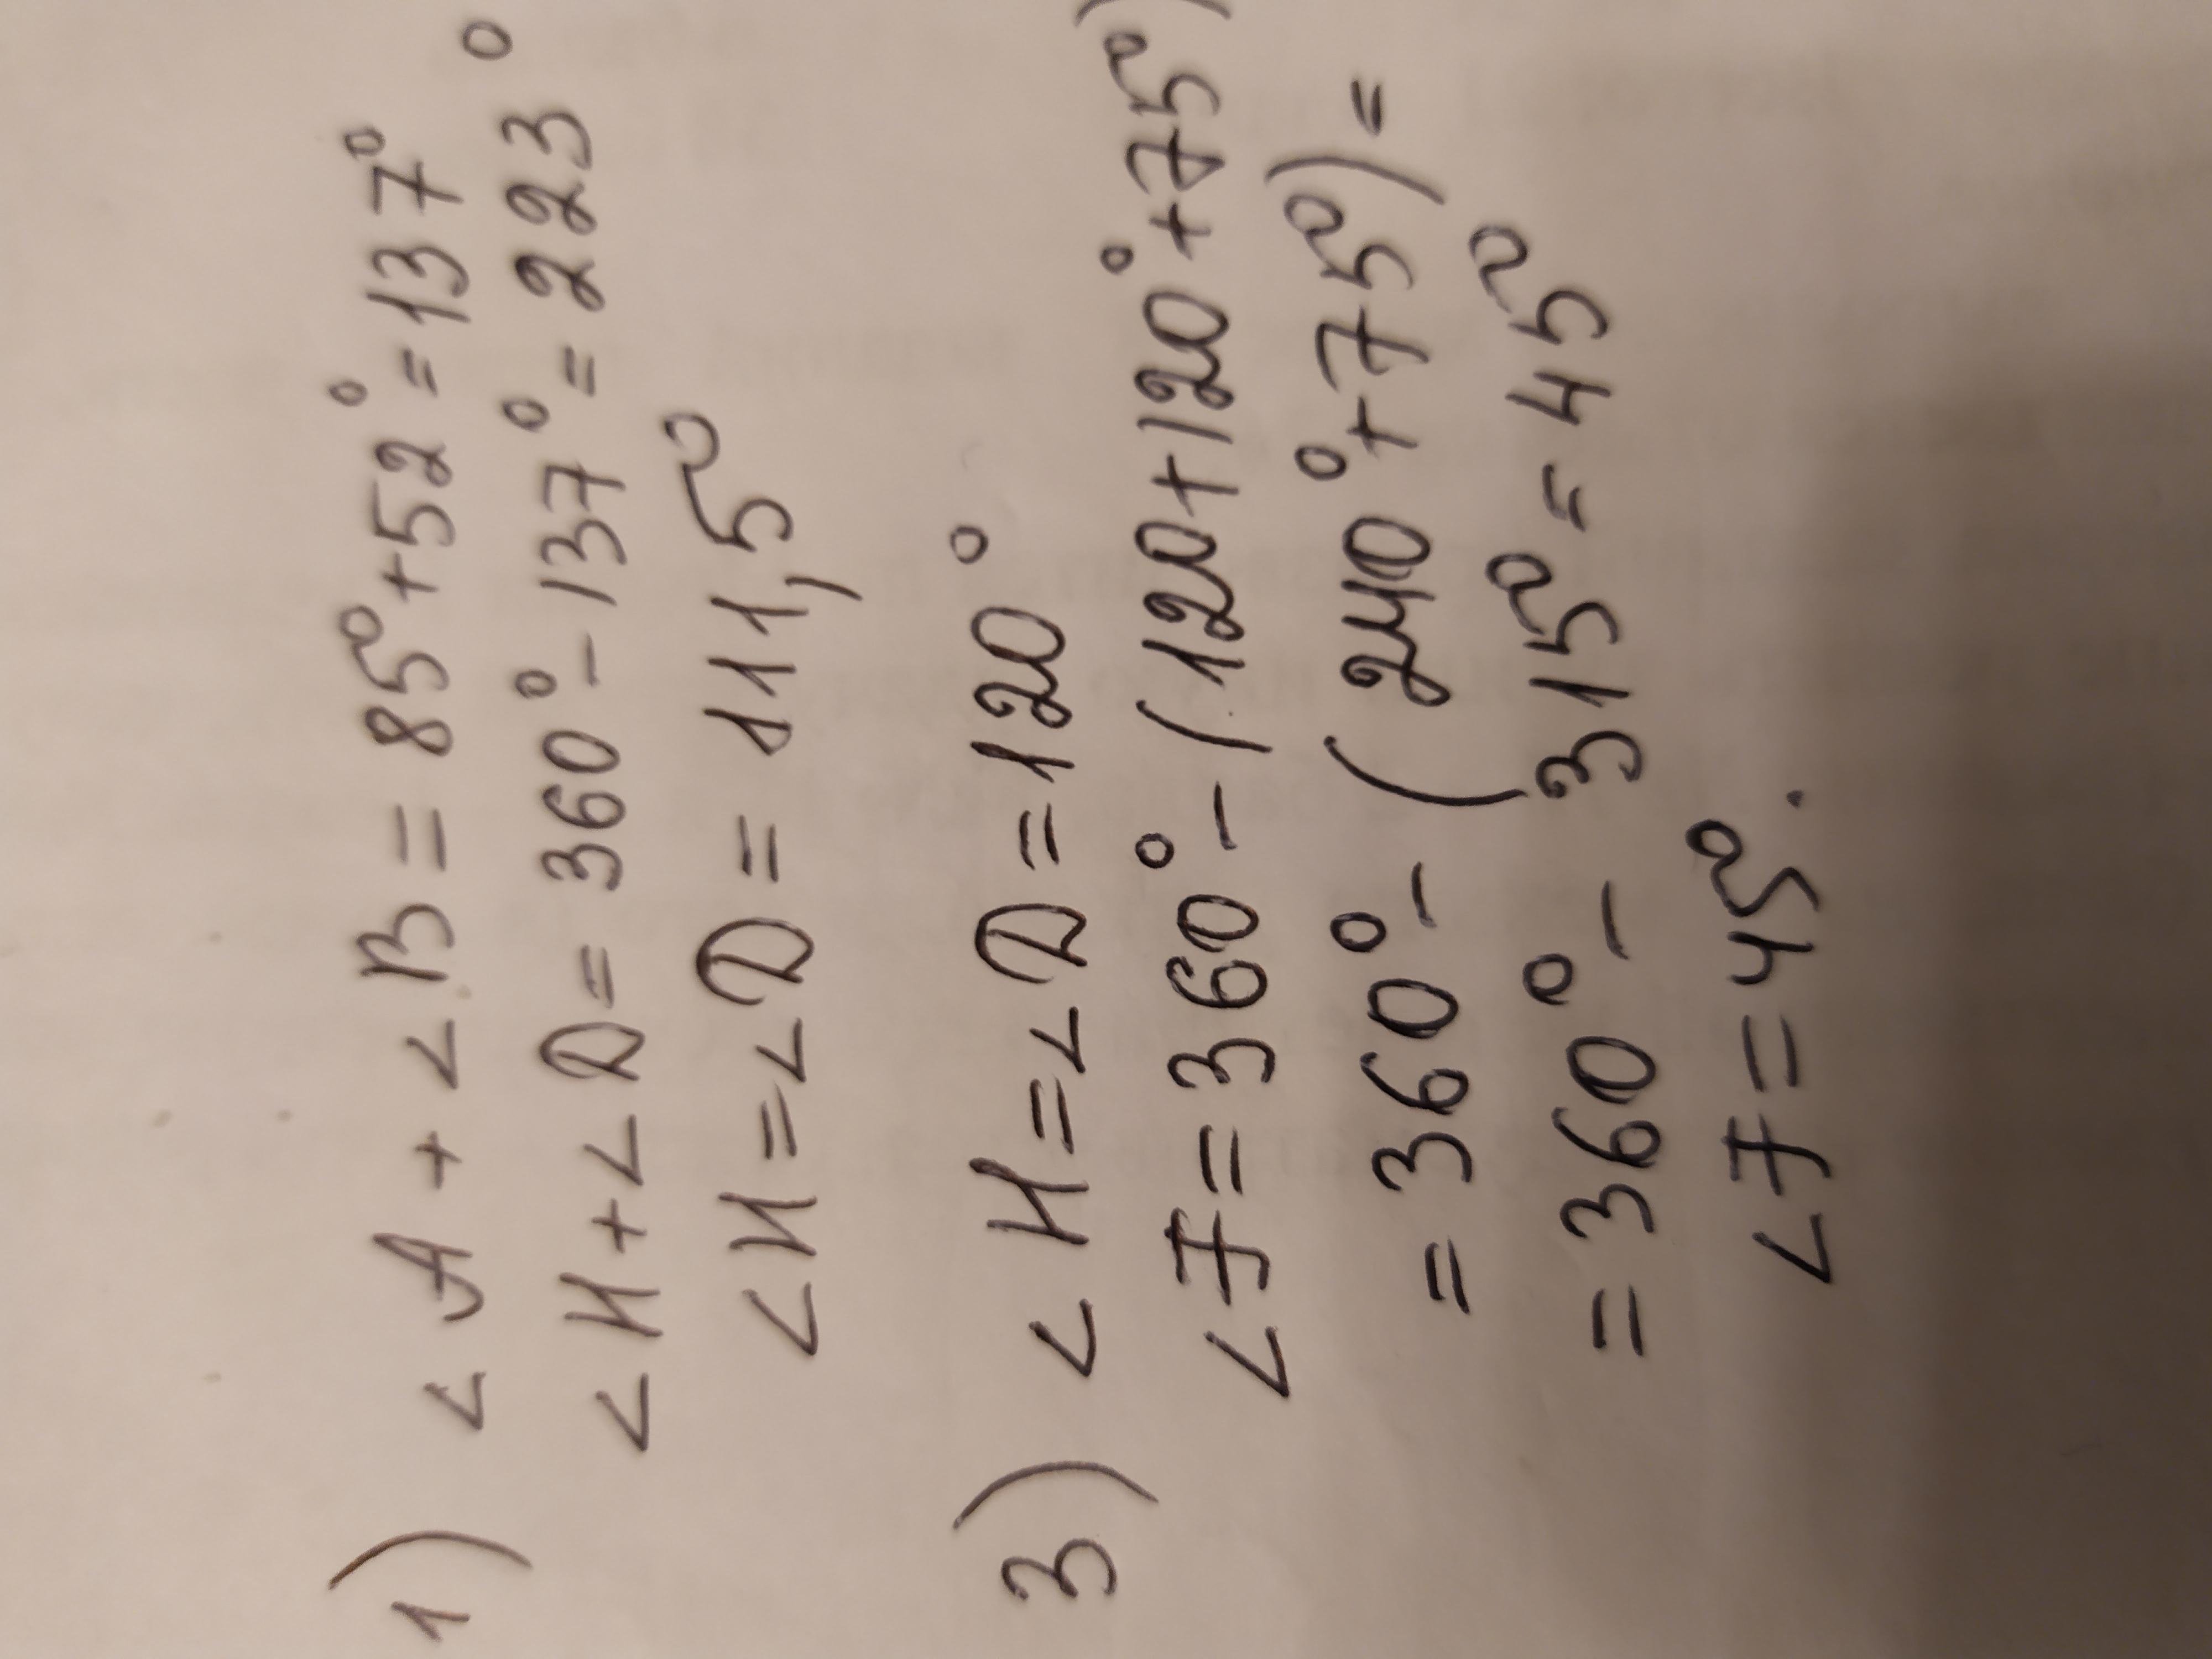 1) ∠A + ∠B = 85° + 52° = 137°
∠H + ∠D = 360° - 137° = 223°
∠H = ∠D = 111,5°
3) ∠H = ∠D = 120°
∠F = 360° - (120 + 120° + 75°)
= 360° - (240° + 75°) =
= 360° - 315° = 45°
∠F = 45°.